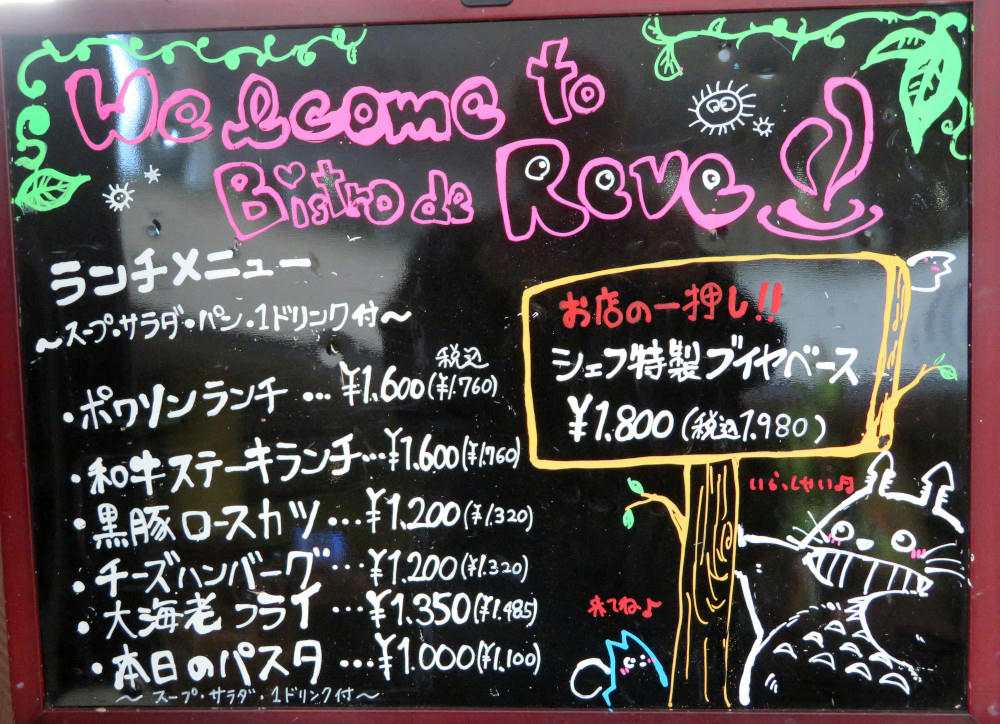 Welcome to
Bistro de Reve
ランチメニュー
〜スープ・サラダ・パン・1ドリンク付〜
税込
・ポワソンランチ …¥1.600(¥1.760)
・和牛ステーキランチ…¥1.600(¥1.760)
・黒豚ロースカツ …¥1.200(¥1.320)
・チーズハンバーグ …¥1.200(¥1.320)
・大海老フライ …¥1.350(¥1.485)
・本日のパスタ …¥1.000(¥1.100)
〜スープ・サラダ・1ドリンク付〜
お店の一押し!!
シェフ特製ブイヤベース
¥1.800(税込1.980)
いらっしゃい♪
来てね♪